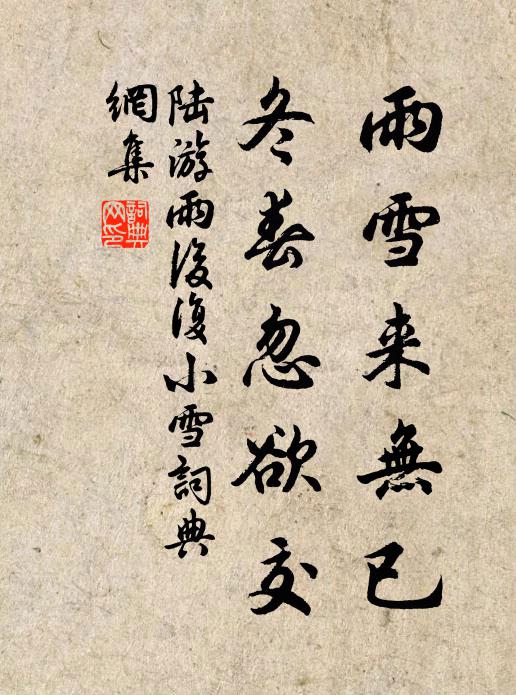 雨雪来無已
冬春忽欲交
陆游雨後復小雪詞典
網集
詞典
网印